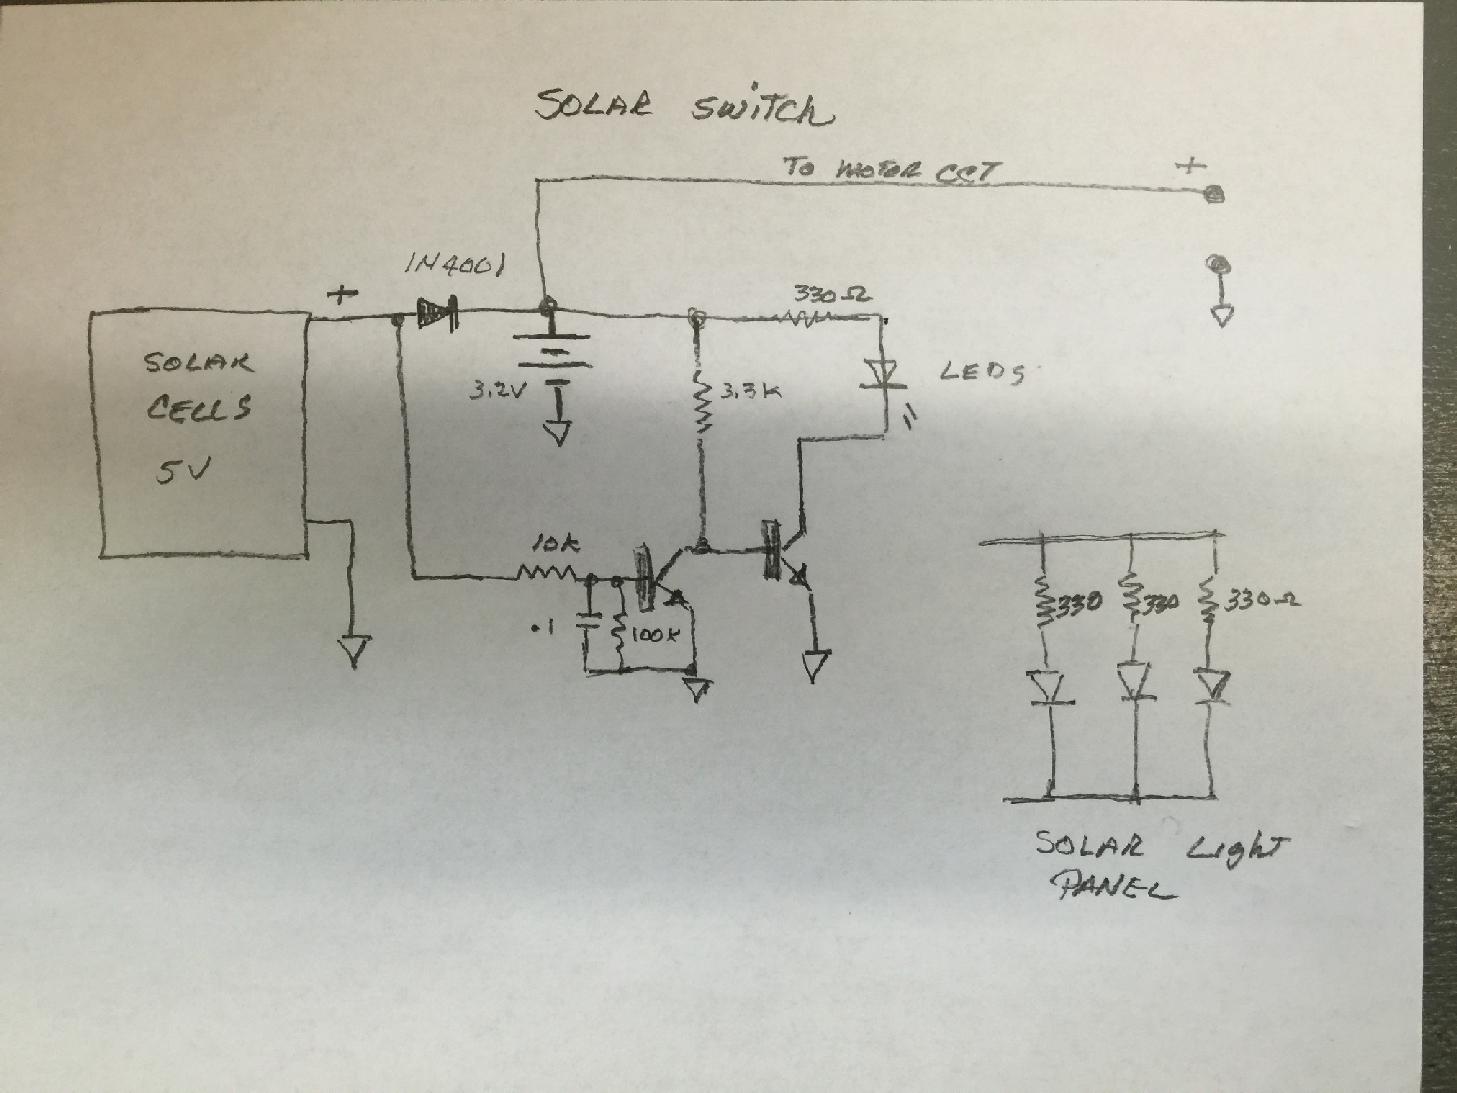 SOLAR SWITCH
TO MOTOR CCT +
1N4001
+
330Ω
SOLAR
CELLS
5V
3.2V
3.3K
LEDS
10K
.1
100K
330 330 330Ω
SOLAR Light
PANEL